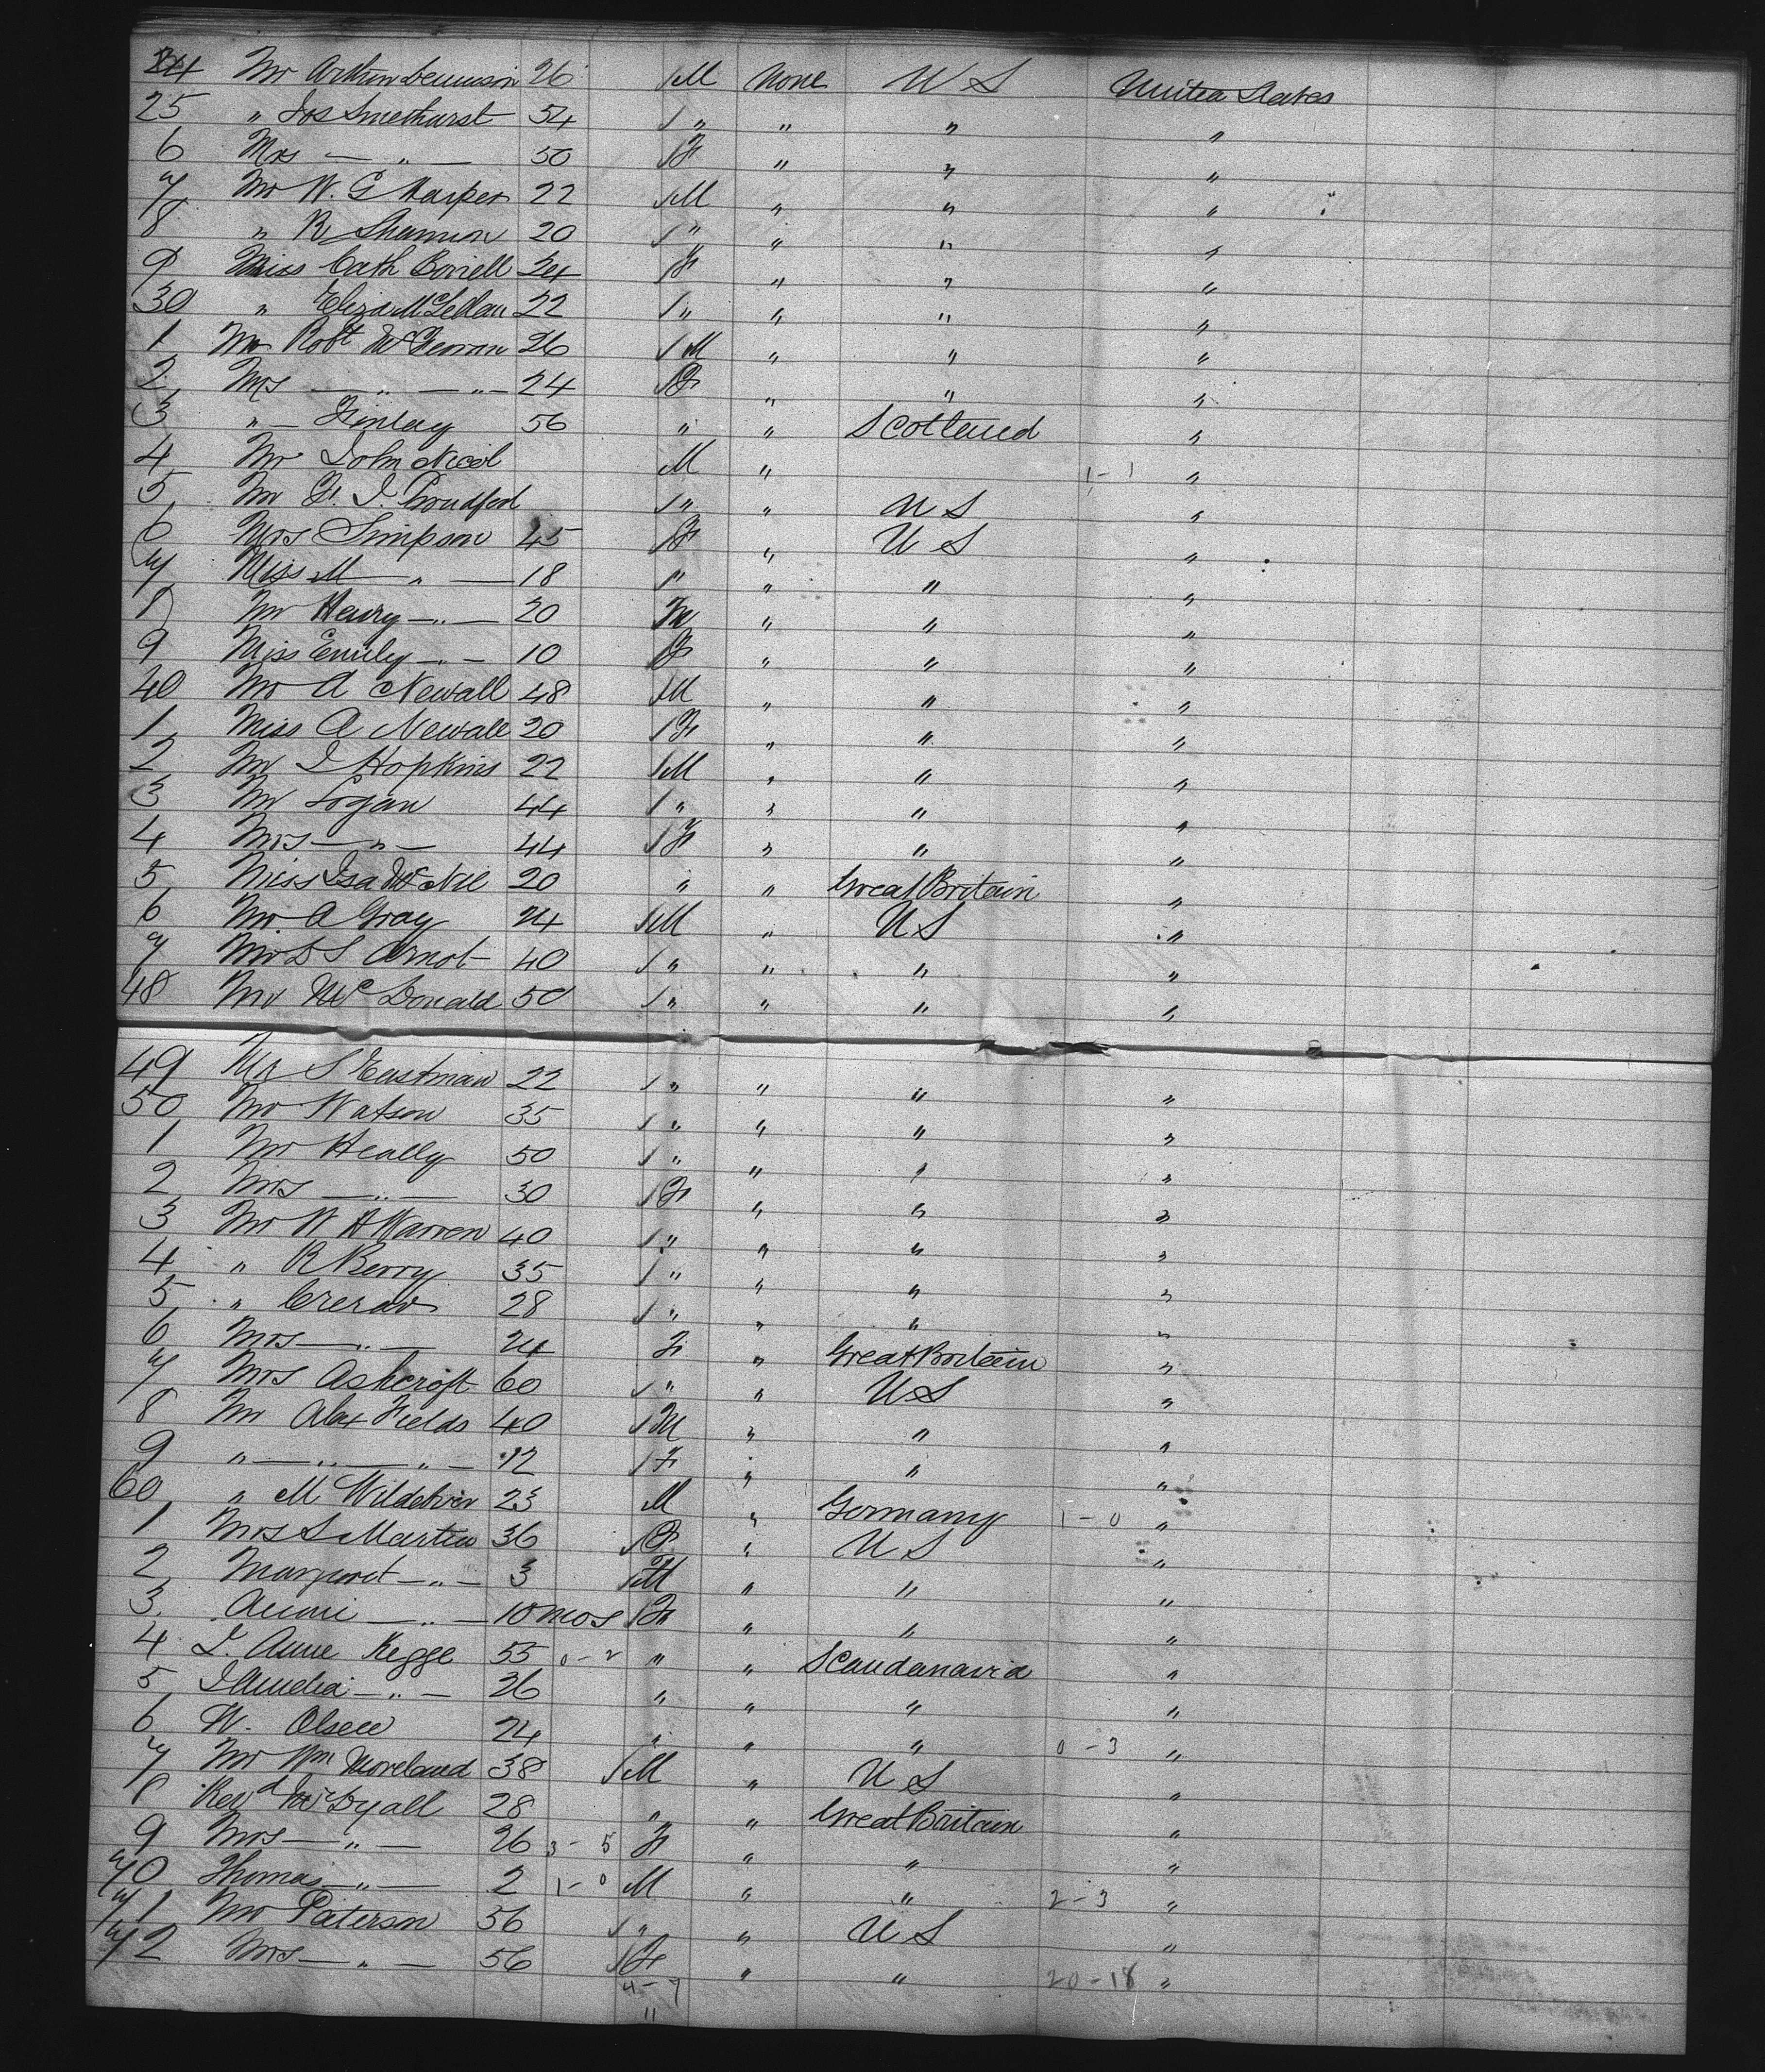 24 Mr Arthur Dennison 26 M None U S United States
25 " Jos Smethurst 54 " " " "
6 Mrs — " — 50 F " " "
7 Mr W. G Harper 22 M " " "
8 " R Shannon 20 " " " "
9 Miss Cath Borrell 24 F " " "
30 " Eliza McLellan 22 " " " "
1 Mr Robt 26 M " " "
2 Mrs — " — " — 24 F " " "
3 " — Finlay 56 " " Scotland "
4 Mr John Nicol M " 1-1 "
5 Mr F. J. " " U S "
6 Mrs Simpson 45 F " U S "
7 Miss M — " — 18 " " " "
8 Mr Henry — " — 20 M " " "
9 Miss Emily — " — 10 F " " "
40 Mr A Newall 48 M " " "
1 Miss A Newall 20 F " " "
2 Mr J Hopkins 22 M " " "
3 Mr Logan 44 " " " "
4 Mrs — " — 44 F " " "
5 Miss Isa McNil 20 " " Great Britain "
6 Mr. A Gray 24 M " U S "
7 Mr D S Arnot 40 " " " "
48 Mr McDonald 50 " " " "
49 Mr S Eastman 22 " " " "
50 Mr Watson 35 " " " "
1 Mr Heally 50 " " " "
2 Mrs — " — 30 F " " "
3 Mr W H Warren 40 " " " "
4 " R Berry 35 " " " "
5 " Crerar 28 " " " "
6 Mrs — " — 24 F " Great Britain "
7 Mrs Ashcroft 60 " " U S "
8 Mr Alex Fields 40 M " " "
9 " — " — " — 12 F " " "
60 " M 23 M " Germany 1-0 "
1 Mrs S Martin 36 F " U S "
2 Margaret — " — 3 M " " "
3 Annie — " — 10 mos F " " "
4 J. Anne Kegge 55 0-2 " " Scandanavia "
5 J Amelia — " — 26 " " " "
6 W. Olsen 24 " " " 0-3 "
7 Mr Wm Moreland 38 M " U S "
8 Revd Mr Dyall 28 " " Great Britain "
9 Mrs — " — 26 3-5 F " " "
70 Thomas — " — 2 1-0 M " " 2-3 "
71 Mr Paterson 56 " " U S "
72 Mrs — " — 56 F " " 20-18 "
4-7
11